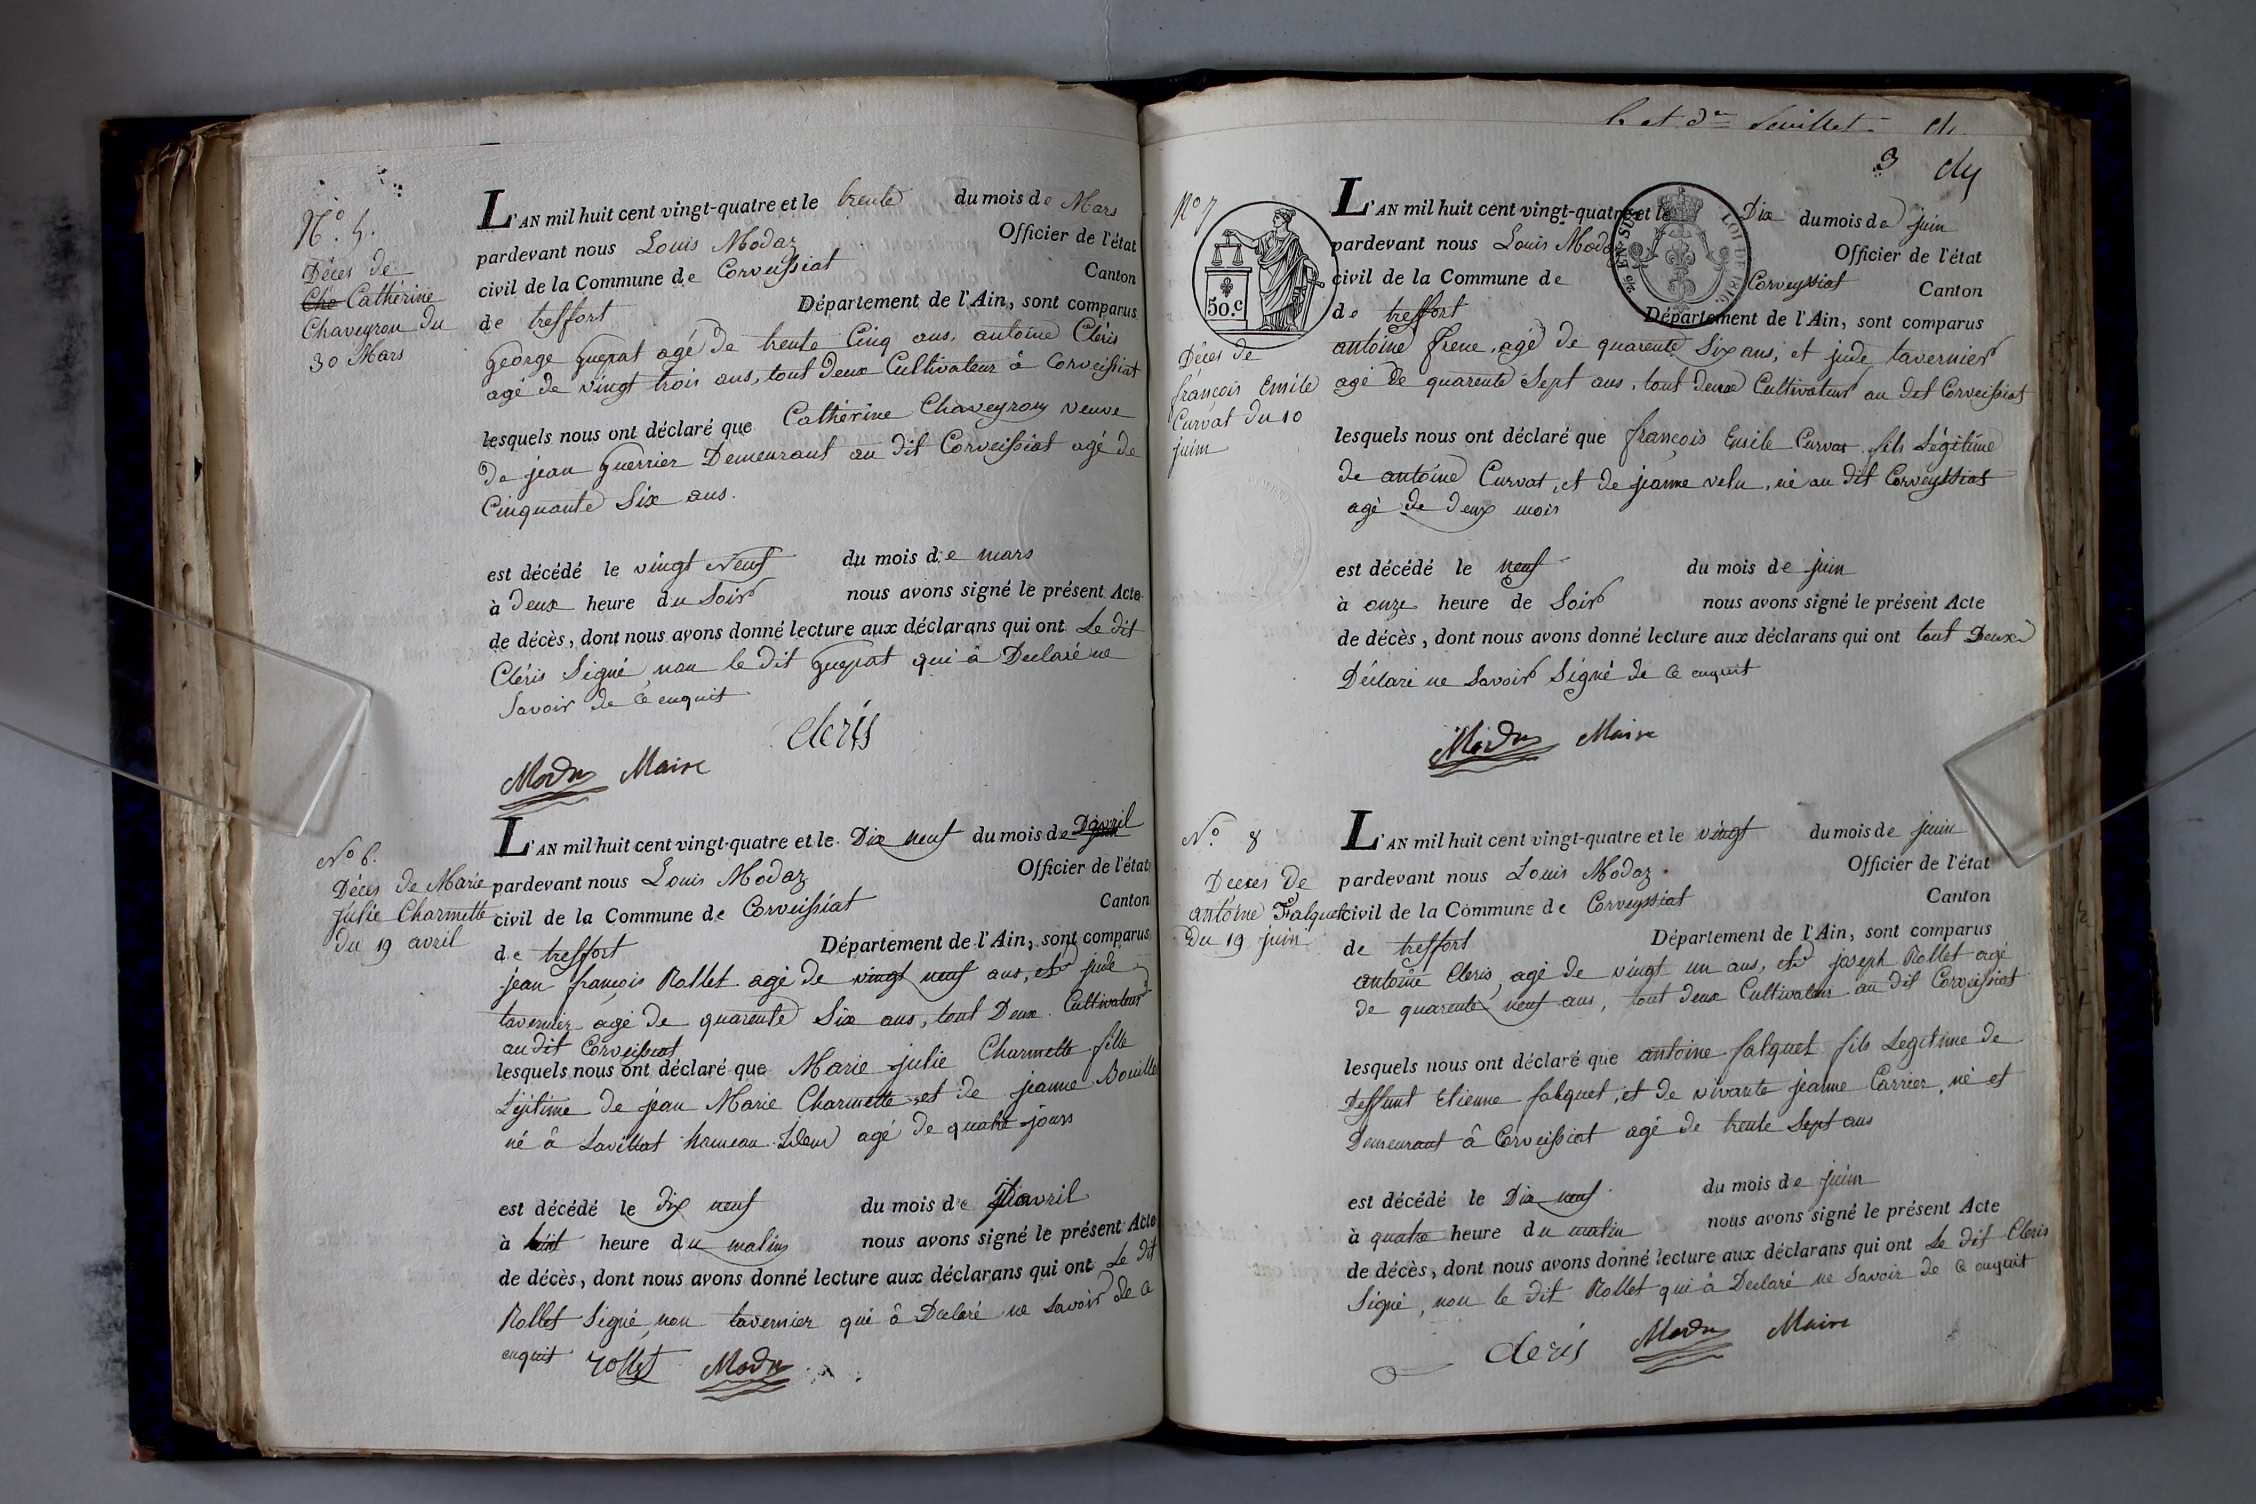 N.o 5.
Décès de
Che Cathérine
Chaveyron du
30 Mars
L'AN mil huit cent vingt-quatre et le trente du mois de Mars
pardevant nous Louis Modaz Officier de l'état
civil de la Commune de Corveissiat Canton
de treffort Département de l'Ain, sont comparus
george guepat agé de trente Cinq ans, antoine Cléris
agé de vingt trois ans, tout deux Cultivateur à Corveissiat
lesquels nous ont déclaré que Cathérine Chaveyron veuve
de jean guerrier Demeurant au dit Corveissiat agé de
Cinquante Six ans.
est décédé le vingt neuf du mois de mars
à deux heure du Soir nous avons signé le présent Acte
de décès, dont nous avons donné lecture aux déclarans qui ont Le dit
Cléris Signé, non le dit guepat qui à Declaré ne
Savoir de ce enquit
cleris
Modaz Maire
N.o 6.
Décès de Marie
julie Charmette
du 19 avril
L'AN mil huit cent vingt-quatre et le Dix neuf du mois de D'avril
pardevant nous Louis Modaz Officier de l'état
civil de la Commune de Corveissiat Canton
de treffort Département de l'Ain, sont comparus
jean françois Rollet agé de vingt neuf ans, et jude
tavernier agé de quarente Six ans, tout Deux Cultivateur
au dit Corveissiat
lesquels nous ont déclaré que Marie julie Charmette fille
Légitime de jean Marie Charmette, et de jeanne Bouille
né à Lavillat hameau agé de quatre jours
est décédé le dix neuf du mois de avril
à huit heure du matins nous avons signé le présent Acte
de décès, dont nous avons donné lecture aux déclarans qui ont Le dit
Rollet Signé, non tavernier qui à Declaré ne Savoir de ce
enquit rollet Modaz
feuillet
3
N.o 7
50.c
Décès de
françois Emile
Curvat du 10
juin
L'AN mil huit cent vingt-quatre et le Dix du mois de juin
pardevant nous Louis Modaz Officier de l'état
civil de la Commune de Corveyssiat Canton
de treffort Département de l'Ain, sont comparus
antoine frene, agé de quarente Six ans, et jude tavernier
agé de quarente Sept ans, tout deux Cultivateur au dit Corveissiat
lesquels nous ont déclaré que françois Emile Curvat fils Légitime
de antoine Curvat, et de jeanne velu, né au dit Corveyssiat
agé de deux mois
est décédé le neuf du mois de juin
à onze heure de Soir nous avons signé le présent Acte
de décès, dont nous avons donné lecture aux déclarans qui ont tout Deux
Déclaré ne Savoir Signé de ce enquit
Modaz Maire
N.o 8
Deces de
antoine Falquet
du 19 juin
L'AN mil huit cent vingt-quatre et le vingt du mois de juin
pardevant nous Louis Modaz Officier de l'état
civil de la Commune de Corveyssiat Canton
de treffort Département de l'Ain, sont comparus
antoine Cleris, agé de vingt un ans, et joseph Rollet agé
de quarente neuf ans, tout deux Cultivateur au dit Corveissiat
lesquels nous ont déclaré que antoine falquet fils Legitime de
Deffunt Etienne falquet, et de vivante jeanne Carrier, né et
Demeurant à Corveissiat agé de trente Sept ans
est décédé le Dix neuf du mois de juin
à quatre heure du matin nous avons signé le présent Acte
de décès, dont nous avons donné lecture aux déclarans qui ont Le dit Cleris
Signé, non le dit Rollet qui à Declaré ne Savoir de ce enquit
cleris Modaz Maire